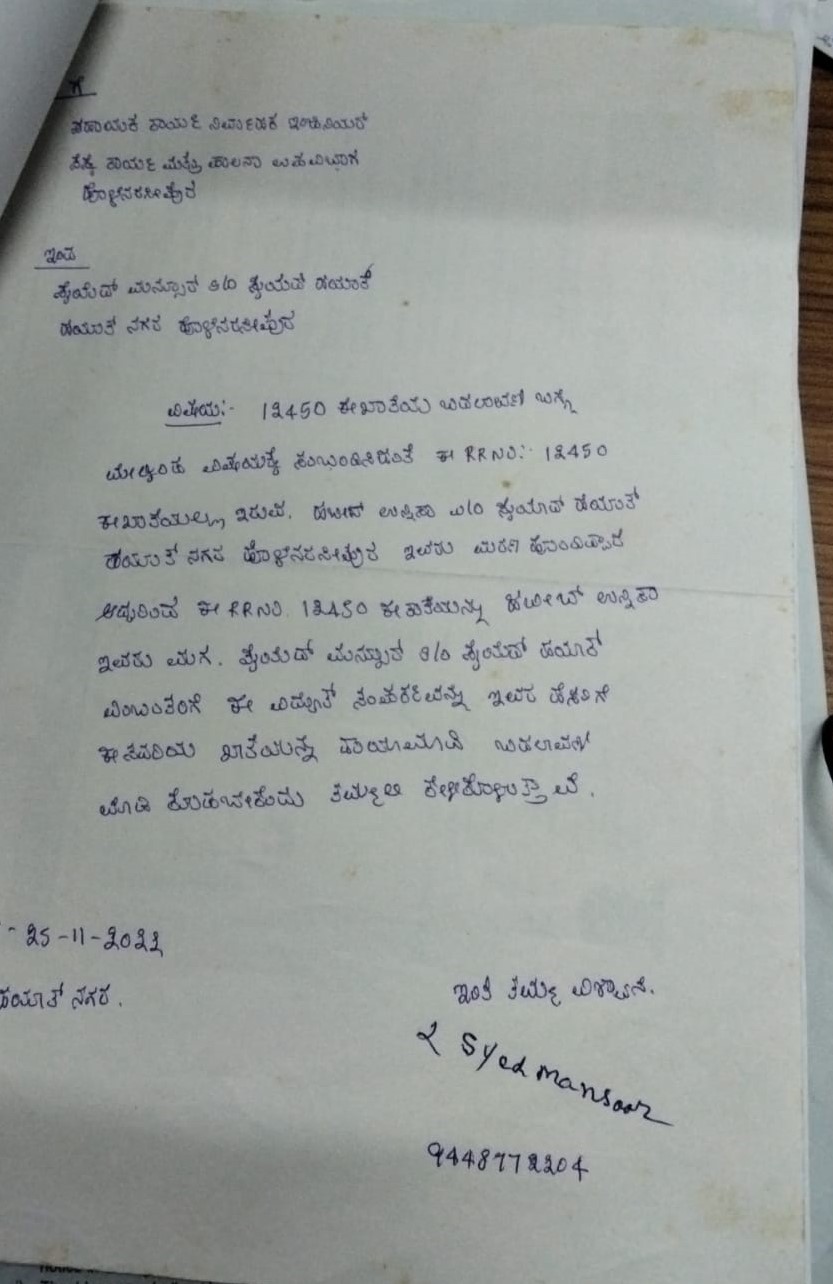 ಗೆ
ಸಹಾಯಕ ಕಾರ್ಯ ನಿರ್ವಾಹಕ ಇಂಜಿನಿಯರ್
ಕಾರ್ಯ ಮತ್ತು ಪಾಲನಾ ಉಪವಿಭಾಗ
ಹೊಳೆನರಸೀಪುರ
ಇಂದ
ಸೈಯದ್ ಮನ್ಸೂರ್ S/O ಸೈಯದ್ ಹಯಾತ್
ಹಯಾತ್ ನಗರ ಹೊಳೆನರಸೀಪುರ
ವಿಷಯ:- 12450 ಈ ಖಾತೆಯ ಬದಲಾವಣೆ ಬಗ್ಗೆ
ಮೇಲ್ಕಂಡ ವಿಷಯಕ್ಕೆ ಸಂಬಂಧಿಸಿದಂತೆ ಈ RRNO:- 12450
ಈ ಖಾತೆಯಲ್ಲಿ ಇರುವ. ಉನ್ನಿಸಾ W/O ಸೈಯಾದ್ ಹಯಾತ್
ಹಯಾತ್ ನಗರ ಹೊಳೆನರಸೀಪುರ ಇವರು ಮರಣ ಹೊಂದಿದ್ದಾರೆ
ಆದ್ದರಿಂದ ಈ RRNO 12450 ಈ ಖಾತೆಯನ್ನು ಹಬೀಬ್ ಉನ್ನಿಸಾ
ಇವರು ಮಗ. ಸೈಯದ್ ಮನ್ಸೂರ್ S/O ಸೈಯದ್ ಹಯಾತ್
ಎಂಬುವರಿಗೆ ಈ ವಿದ್ಯುತ್ ಸಂಪರ್ಕವನ್ನು ಇವರ ಹೆಸರಿಗೆ
ಈ ಖಾತೆಯನ್ನು ಬದಲಾವಣೆ
ಮಾಡಿ ಕೊಡಬೇಕೆಂದು ತಮ್ಮಲ್ಲಿ ಕೇಳಿಕೊಳ್ಳುತ್ತೇವೆ.
- 25-11-2022
ಹಯಾತ್ ನಗರ.
ಇಂತಿ ತಮ್ಮ ವಿಶ್ವಾಸಿ.
Syed mansoor
9448772204